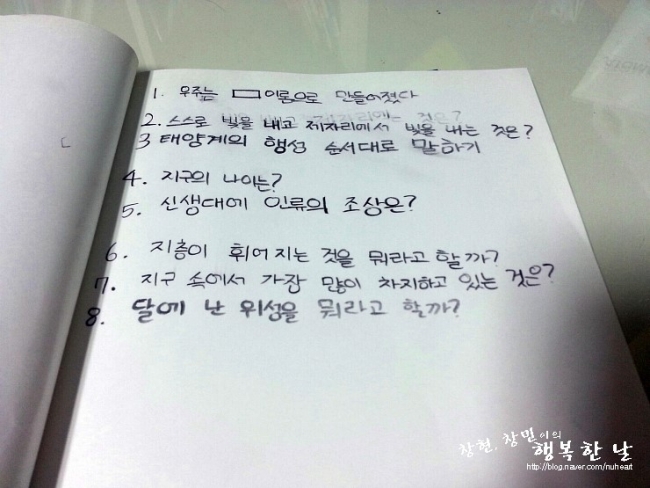 1. 우주는 □이론으로 만들어졌다
2. 스스로 빛을 내고 제자리에서 빛을 내는 것은?
3 태양계의 행성 순서대로 말하기
4. 지구의 나이는?
5. 신생대에 인류의 조상은?
6. 지층이 휘어지는 것을 뭐라고 할까?
7. 지구 속에서 가장 많이 차지하고 있는 것은?
8. 달에 난 위성을 뭐라고 할까?
창현, 창민이의
행복한 날
http://blog.naver.com/nuheart